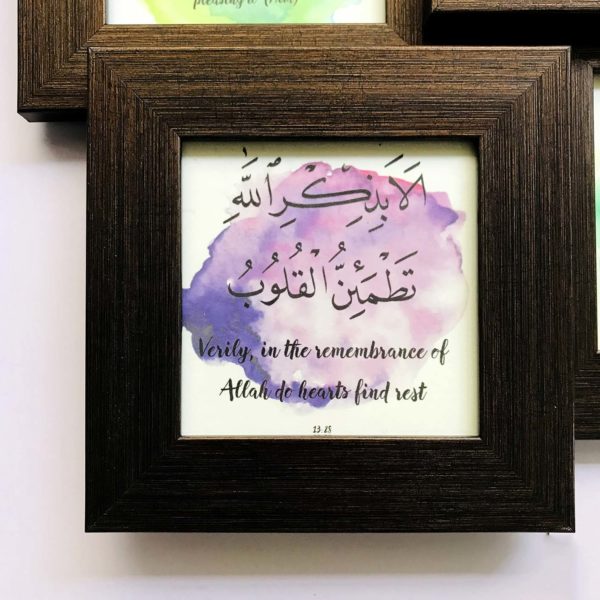 pleasing to (Him)
أَلَا بِذِكْرِ ٱللَّهِ
تَطْمَئِنُّ ٱلْقُلُوبُ
Verily, in the remembrance of
Allah do hearts find rest
13:28